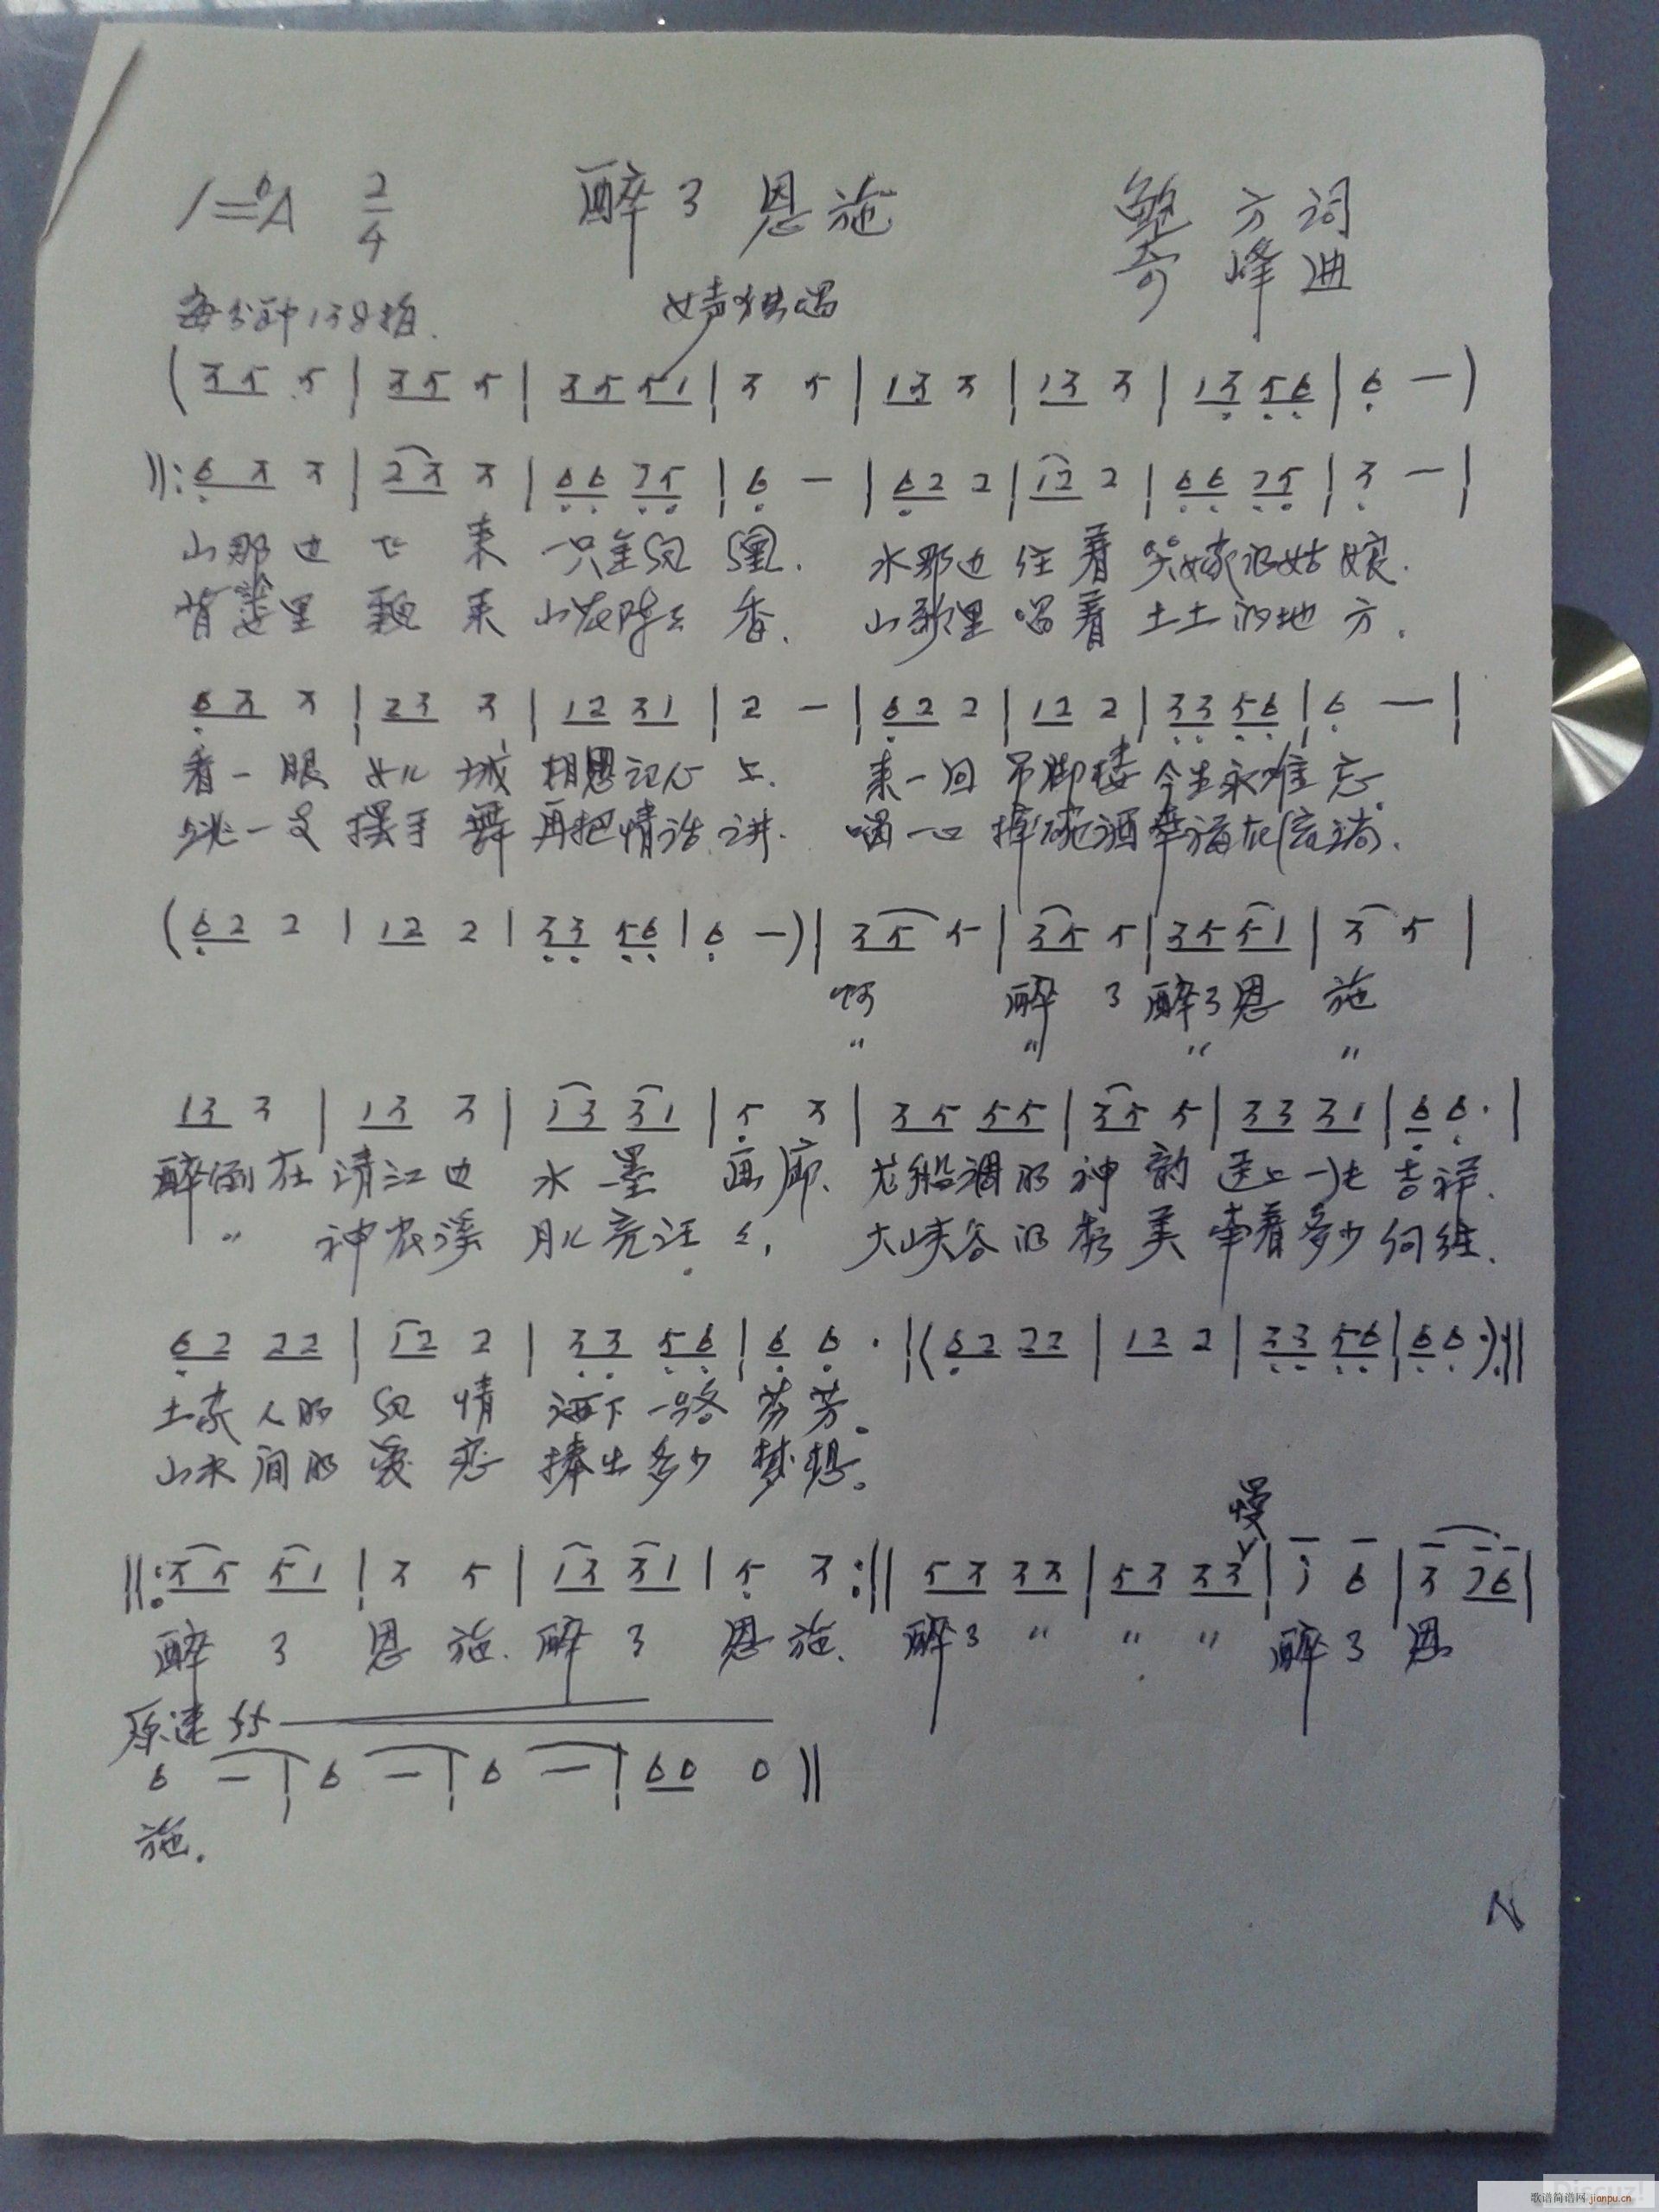 1=bA 2/4 醉了恩施 鲍方词
奇峰曲
每分钟138拍. 女声独唱
(35 5 | 35 5 | 35 51 | 3 5 | 13 3 | 13 3 | 13 56 | 6 — )
‖: 63 3 | 23 3 | 66 75 | 6 — | 62 2 | 12 2 | 66 75 | 3 — |
山那边 飞 来 一只金凤凰. 水那边住着哭嫁的姑娘.
背篓里 飘 来 山花阵阵香. 山歌里唱着土土的地方.
63 3 | 23 3 | 12 31 | 2 — | 62 2 | 12 2 | 33 56 | 6 — |
看一眼 女儿城 相思记心上. 来一回吊脚楼今生永难忘.
跳一支 摆手舞 再把情话讲. 喝一口摔碗酒幸福在流淌.
(62 2 | 12 2 | 33 56 | 6 —) | 35 5 | 35 5 | 35 51 | 3 5 |
啊 醉了醉了恩施
" " " "
13 3 | 13 3 | 13 31 | 5 3 | 35 55 | 35 5 | 33 31 | 6 6. |
醉倒在清江边 水墨画廊. 龙船调的神韵送上一片吉祥.
" 神农溪 月儿亮汪汪, 大峡谷的秀美牵着多少向往.
62 22 | 12 2 | 33 56 | 6 6. | (62 22 | 12 2 | 33 56 | 6 6.) :‖
土家人的风情 洒下一路芬芳。
山水间的爱恋 捧出多少梦想。
慢
‖: 35 51 | 3 5 | 13 31 | 5 3 :‖ 53 33 | 53 33 | 1 6 | 3 76 |
醉了恩施. 醉了恩施. 醉了 " " " 醉了恩
原速 ff
6 — | 6 — | 6 — | 60 0 ‖
施.
歌谱简谱网 jianpu.cn
Discuz!